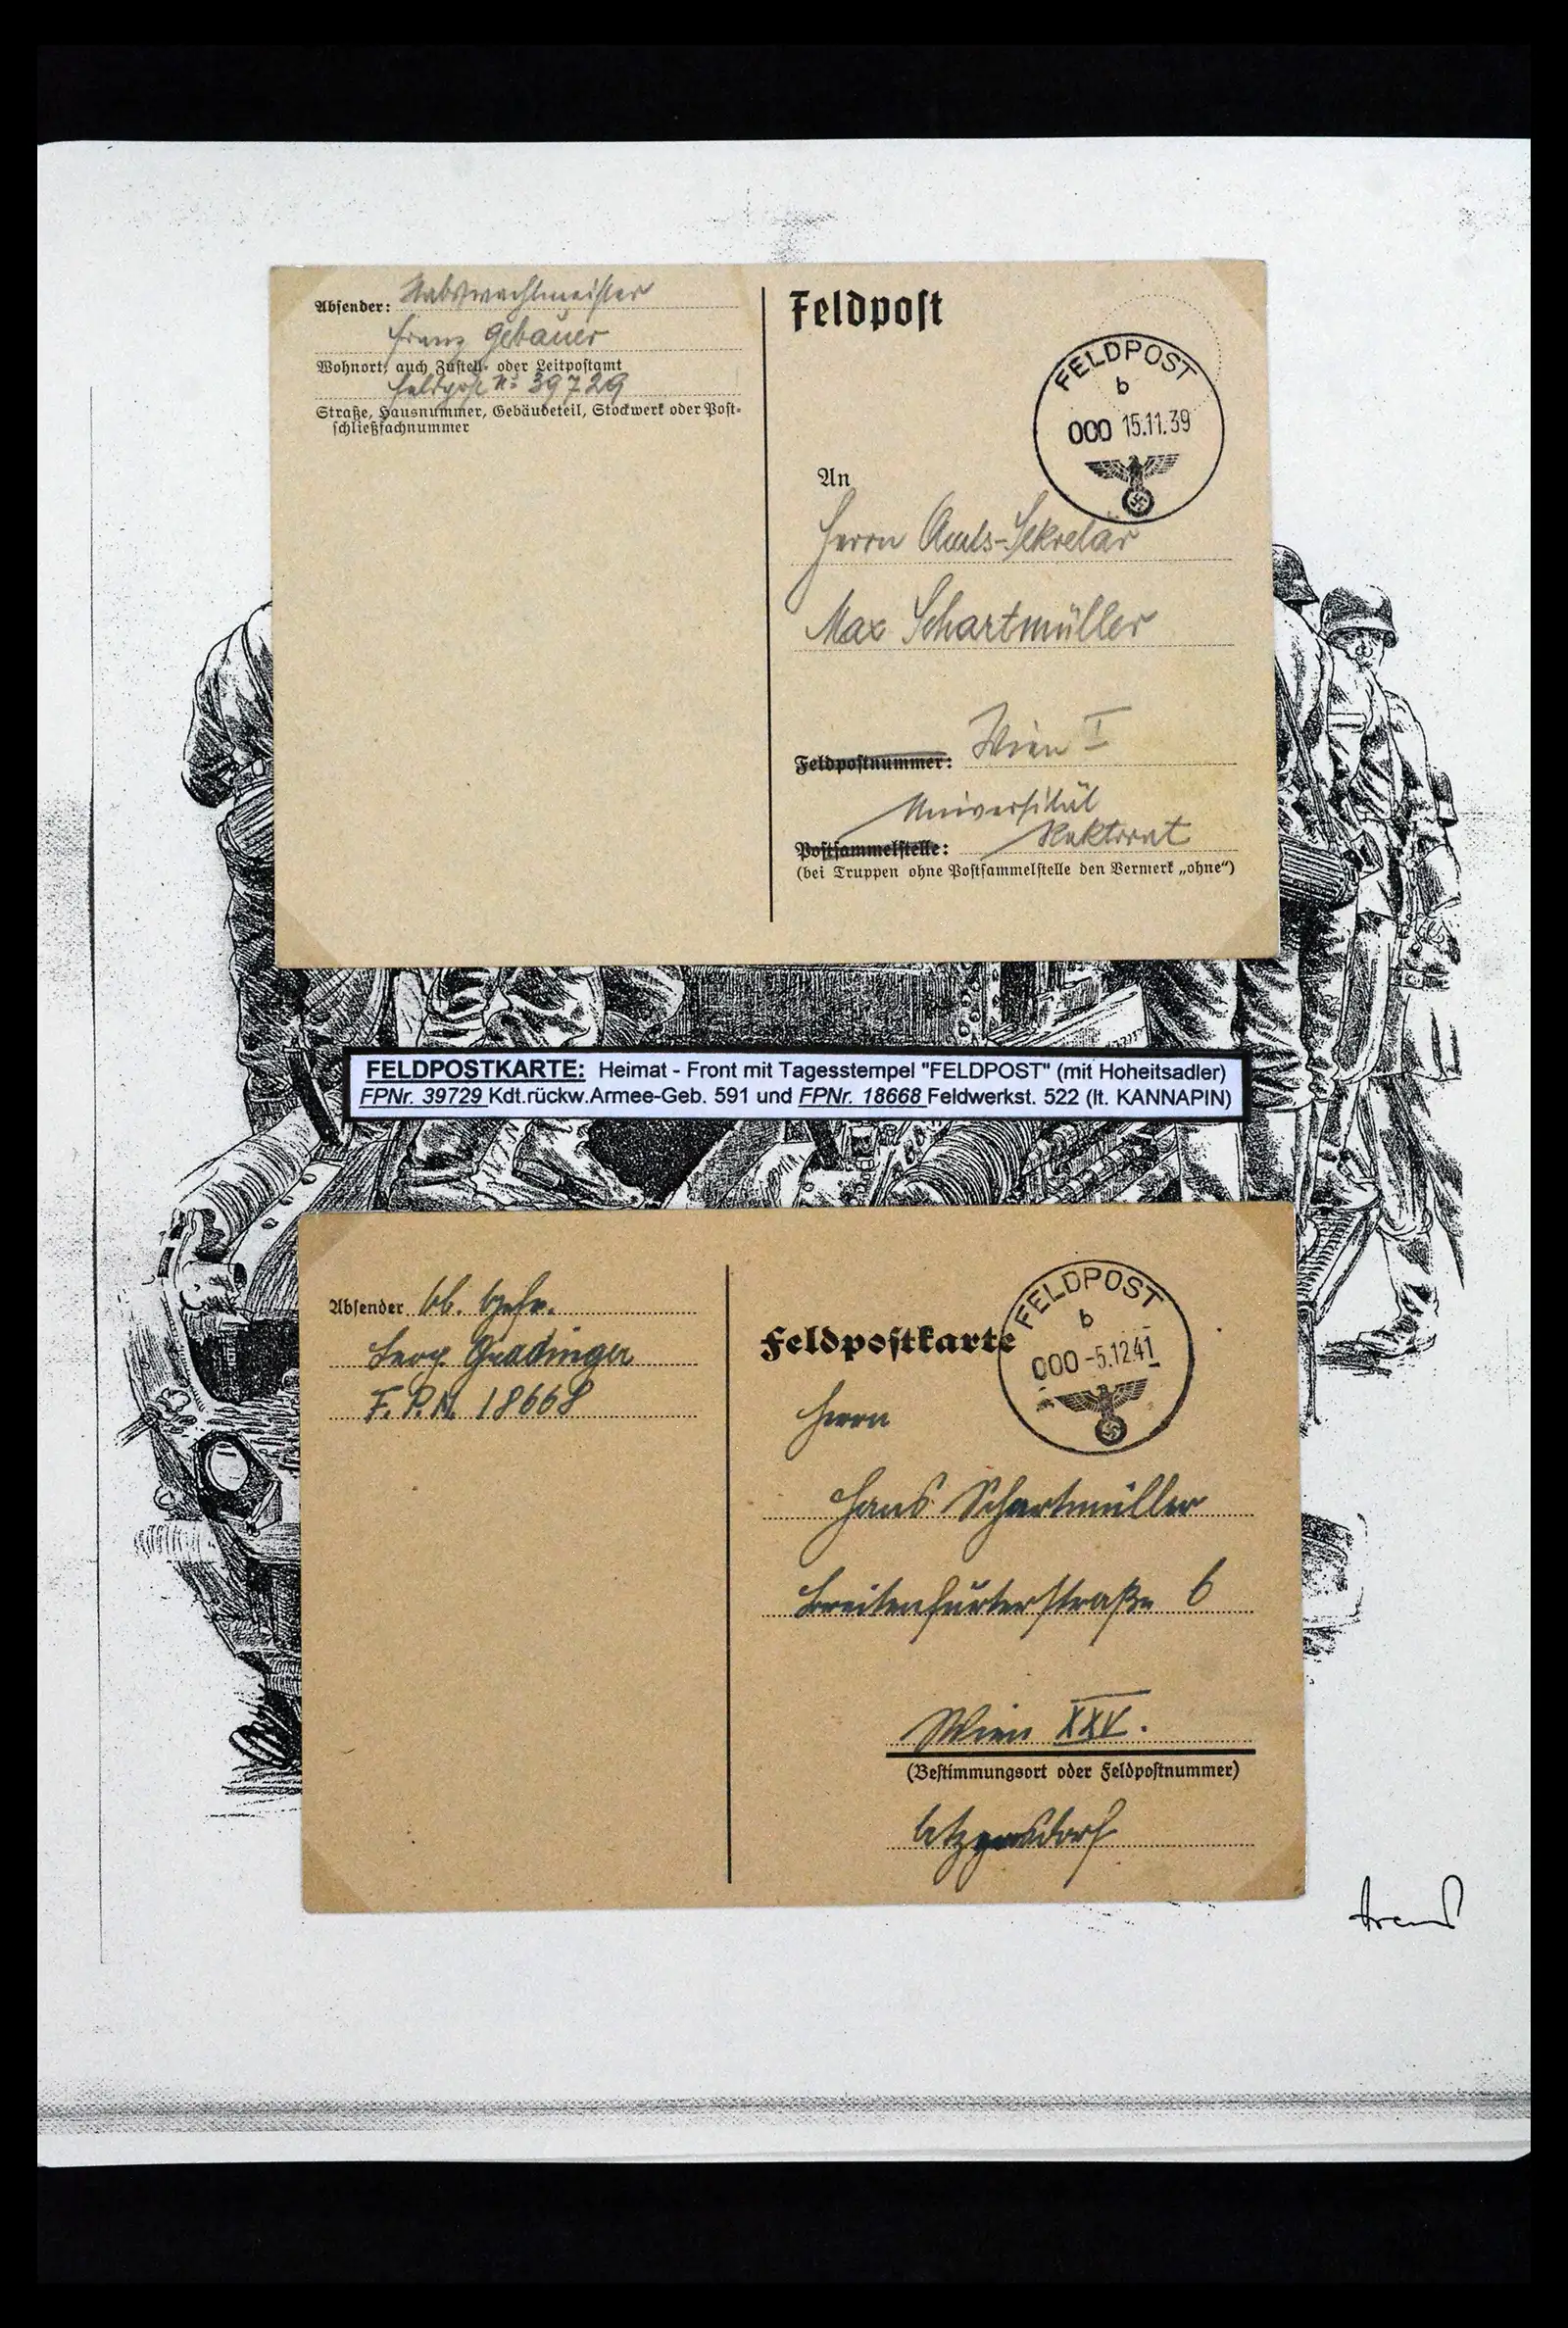 Absender: Stabswachtmeister
Franz Gebauer
Wohnort, auch Zustell- oder Leitpostamt
Feldpost No 39729
Straße, Hausnummer, Gebäudeteil, Stockwerk oder Post-
schließfachnummer
Feldpost
FELDPOST
b
000 15.11.39
An
Herrn Amts-Sekretär
Max Schartmüller
Feldpostnummer: Wien I
Universität
Postsammelstelle: Rektorat
(bei Truppen ohne Postsammelstelle den Vermerk „ohne“)
FELDPOSTKARTE: Heimat - Front mit Tagesstempel "FELDPOST" (mit Hoheitsadler)
FPNr. 39729 Kdt.rückw.Armee-Geb. 591 und FPNr. 18668 Feldwerkst. 522 (lt. KANNAPIN)
Absender Ob. Gefr.
Leop. Gradinger
F.P.N. 18668
Feldpostkarte
FELDPOST
b
000 -5.12.41
Herrn
Hans Schartmüller
Breitenfurterstraße 6
Wien XXV.
(Bestimmungsort oder Feldpostnummer)
Atzgersdorf